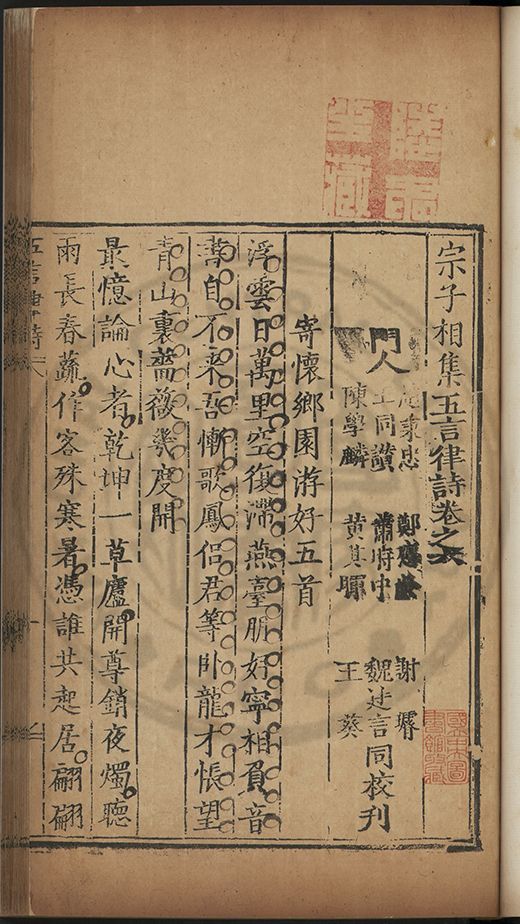 宗子相集五言律詩卷之六
秉忠 鄭 謝
門人 王同讚 蕭時中 魏 言 同校刊
陳學麟 黃其 王葵
寄懷鄉園游好五首
浮雲日萬里空復滯燕臺朋好寧相負音
書自不來吾慚歌鳳侶君等卧龍才悵望
青山裏薔薇幾度開
最憶論心者乾坤一草廬開尊銷夜燭聽
雨長春蔬作客殊寒暑憑誰共起居翩翩
五言律詩六